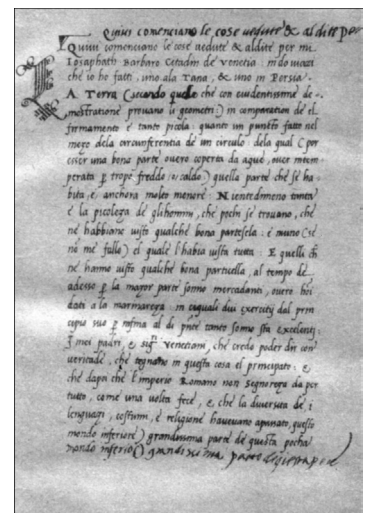 Quiui comenciano le cose uedute & aldite per
Quiui comenciano le cose uedute & aldite per mi
Iosaphath Barbaro Citadin de Venetia in do uiazi
che io ho fatti, uno ala Tana, & uno in Persia.
LA TERRA (secondo quelo che con euidentissime de-
mostratione prouano li geometri) in comparation de el
firmamento è tanto picola: quanto un puncto fatto nel
mezo dela circunferentia de un circulo: dela qual (per
esser una bona parte ouero coperta da aque, ouer intem-
perata per tropo freddo o caldo) quella parte che se ha-
bita, è anchora molto menore. Nientedimeno tanta
è la picoleza de glihomini, che pochi se trouano, che
ne habbiano uisto qualche bona parte: e niuno (se
no me fallo) el quale l'habia uista tutta. E quelli che
ne hanno uisto qualche bona particella, al tempo de
adesso per la magor parte sonno mercadanti, ouero
dati a la marinareza: in iquali dui exercitij dal prin-
cipio suo per infina al di presente tanto sonno
i mei padri, e sig.ri Venetiani, che credo poder dir con
ueritade, che in questa cosa el principato: e
che dapoi che l'imperio Romano non signoreza da per
tutto, come una uolta fece, e che la diuersita de i
lenguazi, costumi, e religione haueuano questo
mondo inferiore) grandissima parte de questa pocha
mondo inferio) grandissima parte